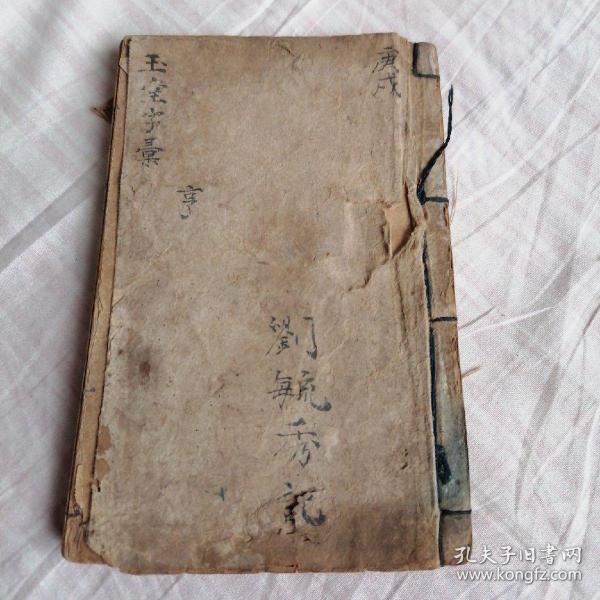 庚戌
玉堂字彙
亨
劉毓秀記
孔夫子旧书网
www.kongfz.com